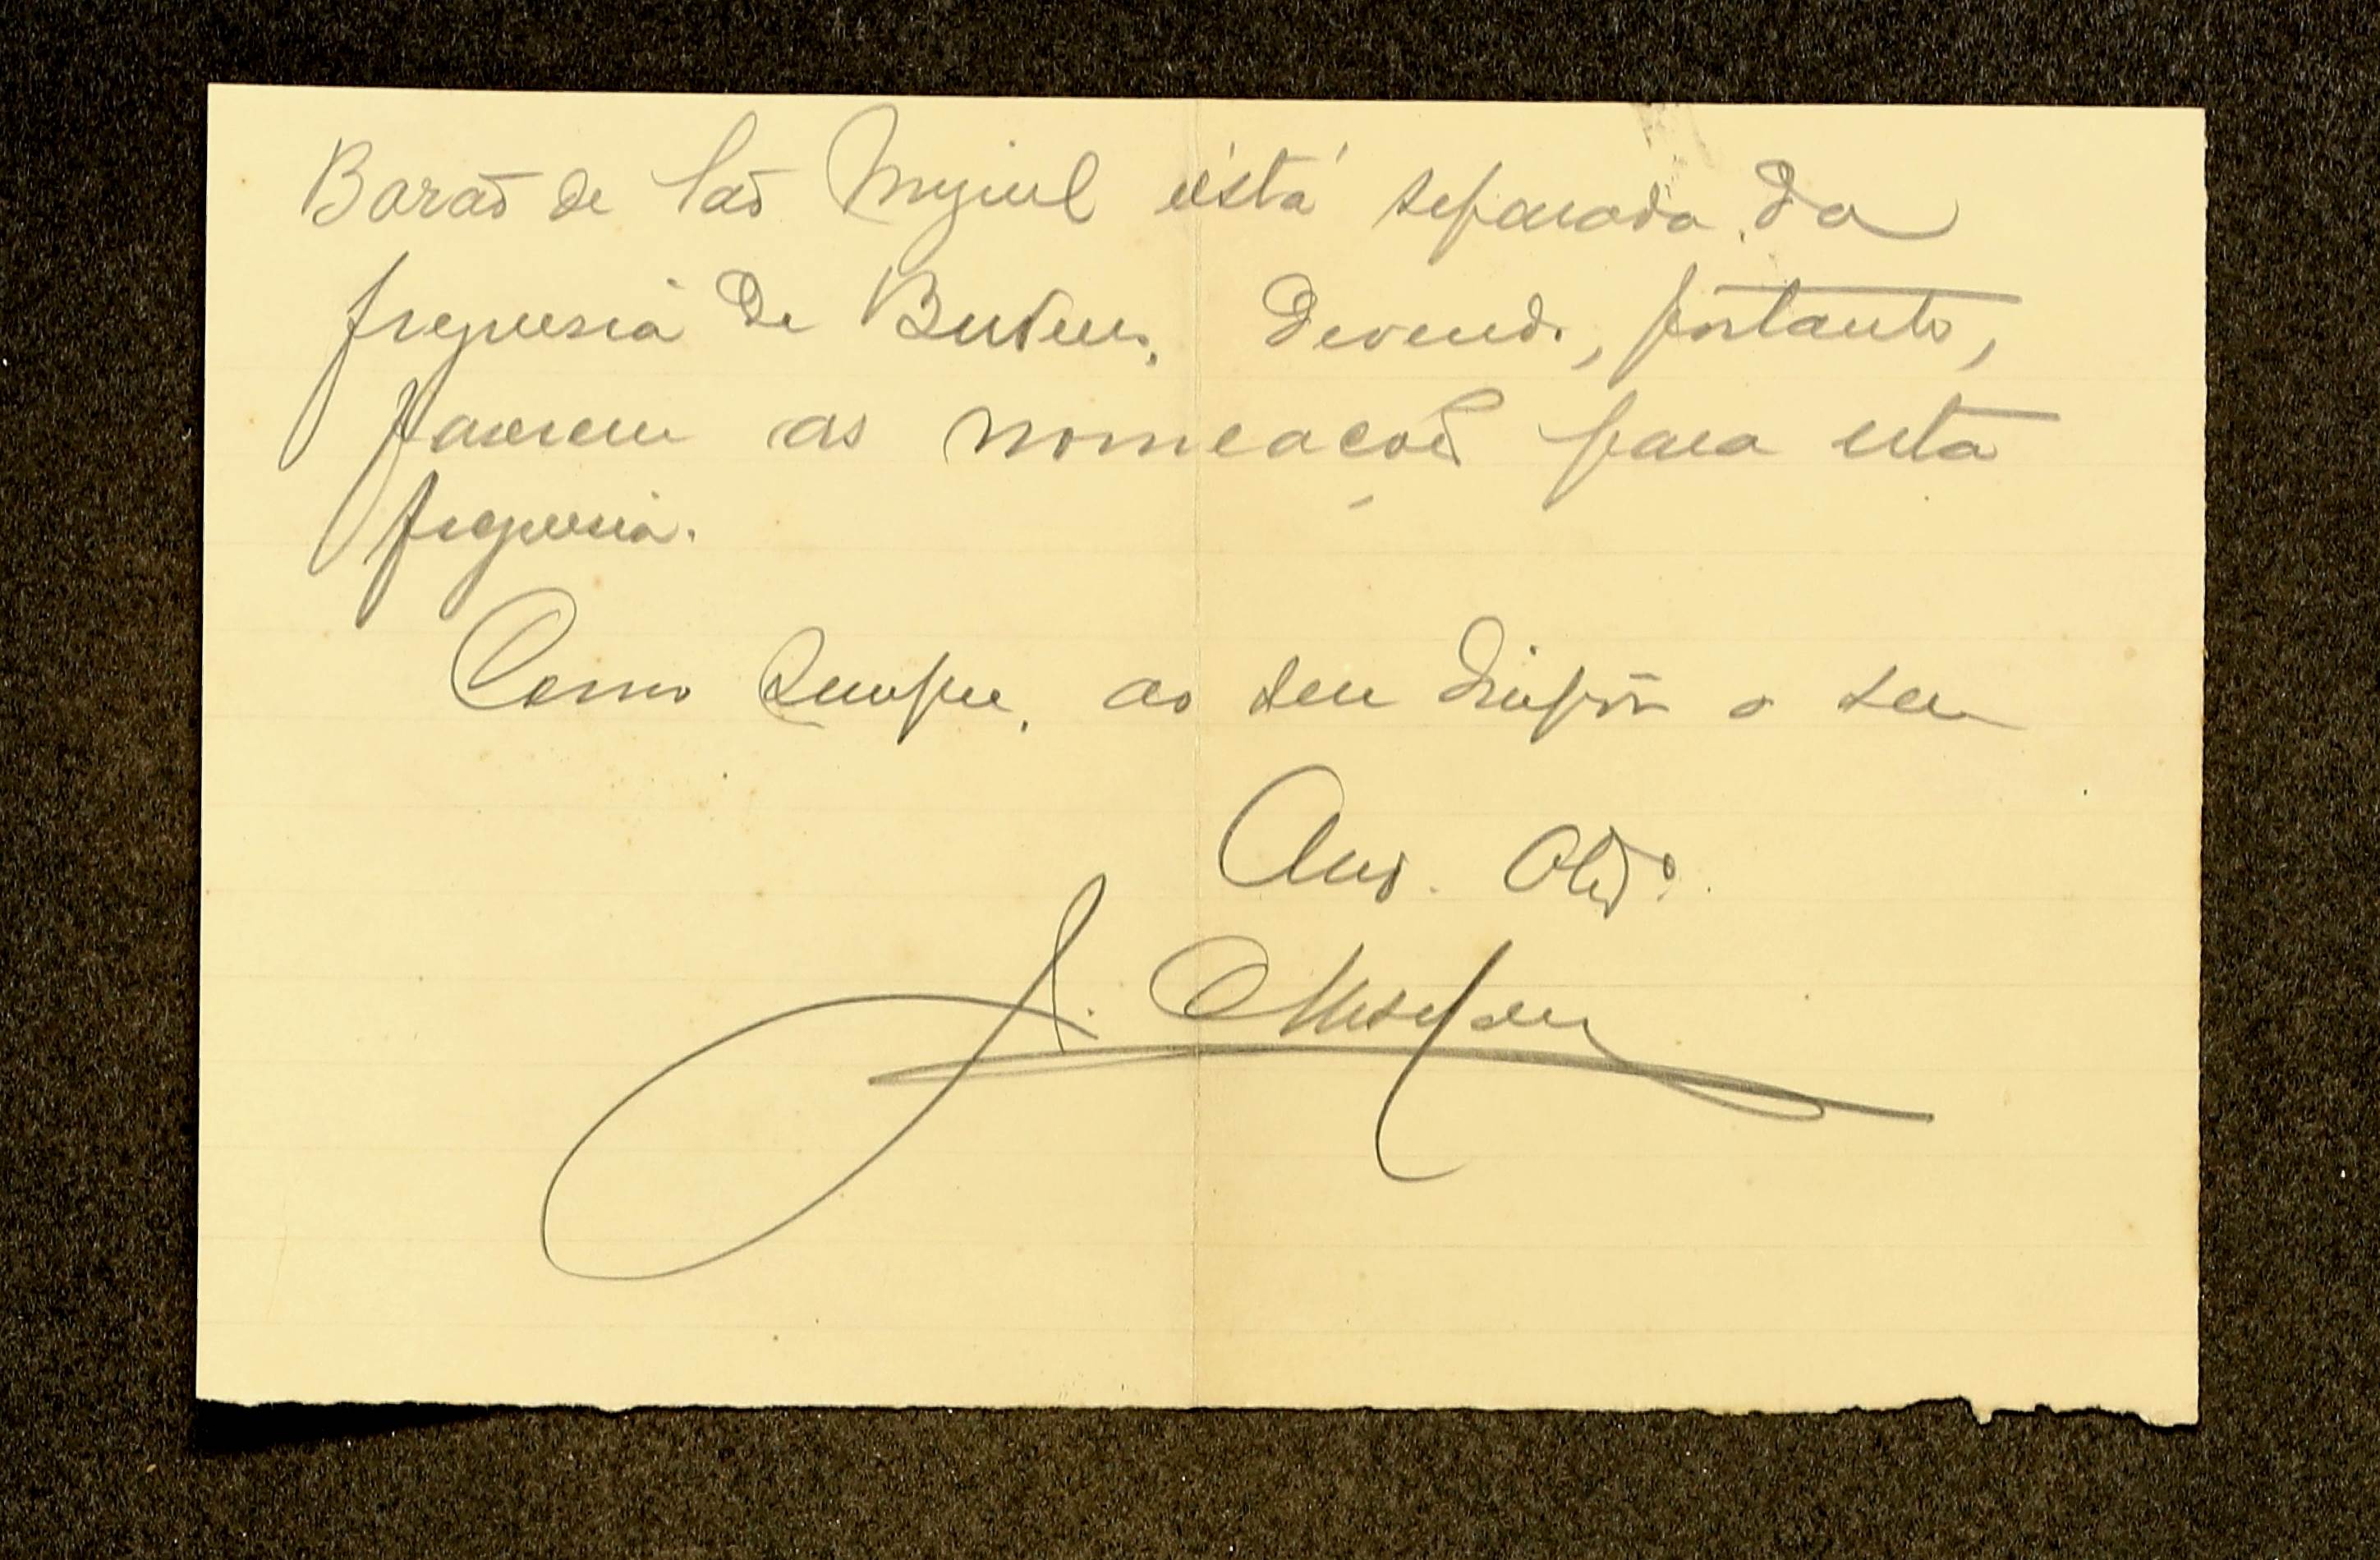 Barão de São Miguel está separada da
freguesia de Budens, devendo, portanto,
fazerem as nomeações para esta
freguesia.
Como sempre, ao seu dispôr o seu
Amo. Obdo.
J.